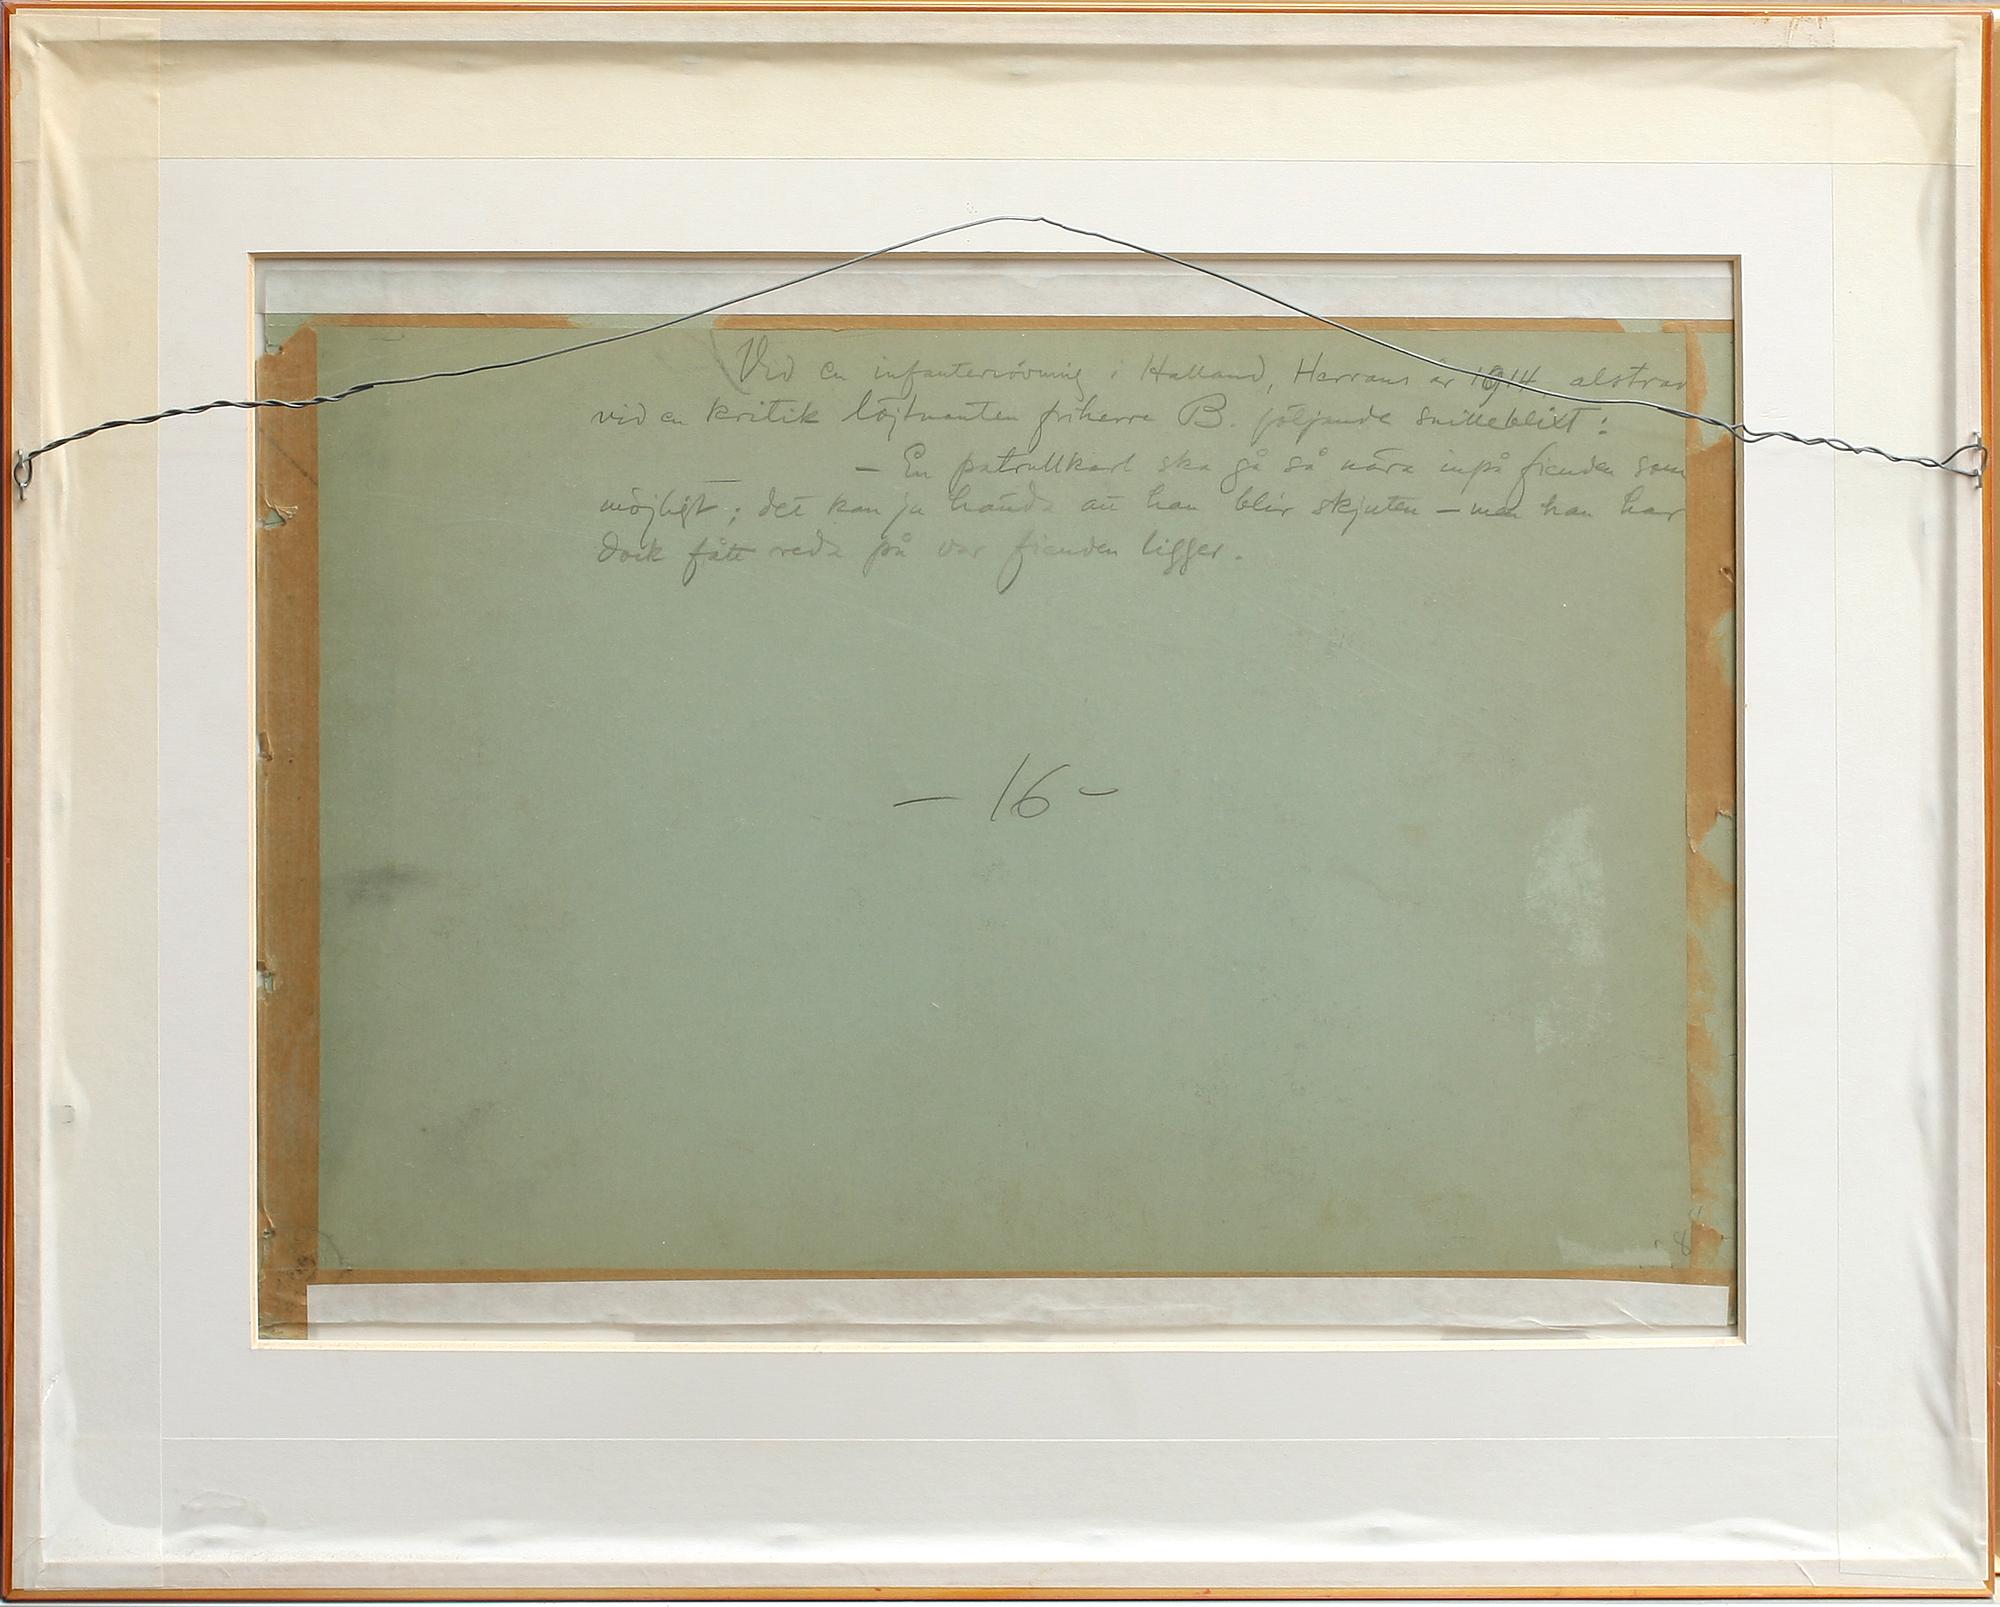 Vid en infanteriövning i Halland, Herrans år 1914, alstrad
vid en kritik löjtnanten friherre B. följande snilleblixt:
– En patrullkarl ska gå så nära inpå fienden som
möjligt; det kan ju hända att han blir skjuten – men han har
dock fått reda på var fienden ligger.
– 16 –
8